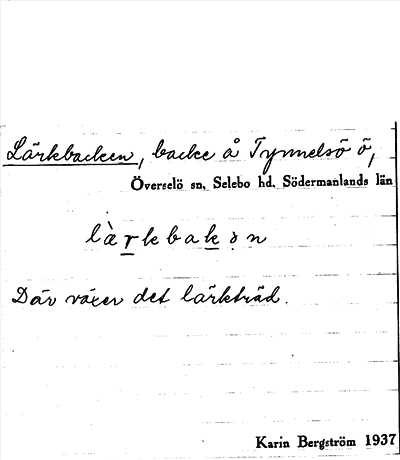 Lärkbacken, backe å Tynnelsö ö,
Överselö sn, Selebo hd, Södermanlands län
làrkbakən
Där växer det lärkträd.
Karin Bergström 1937